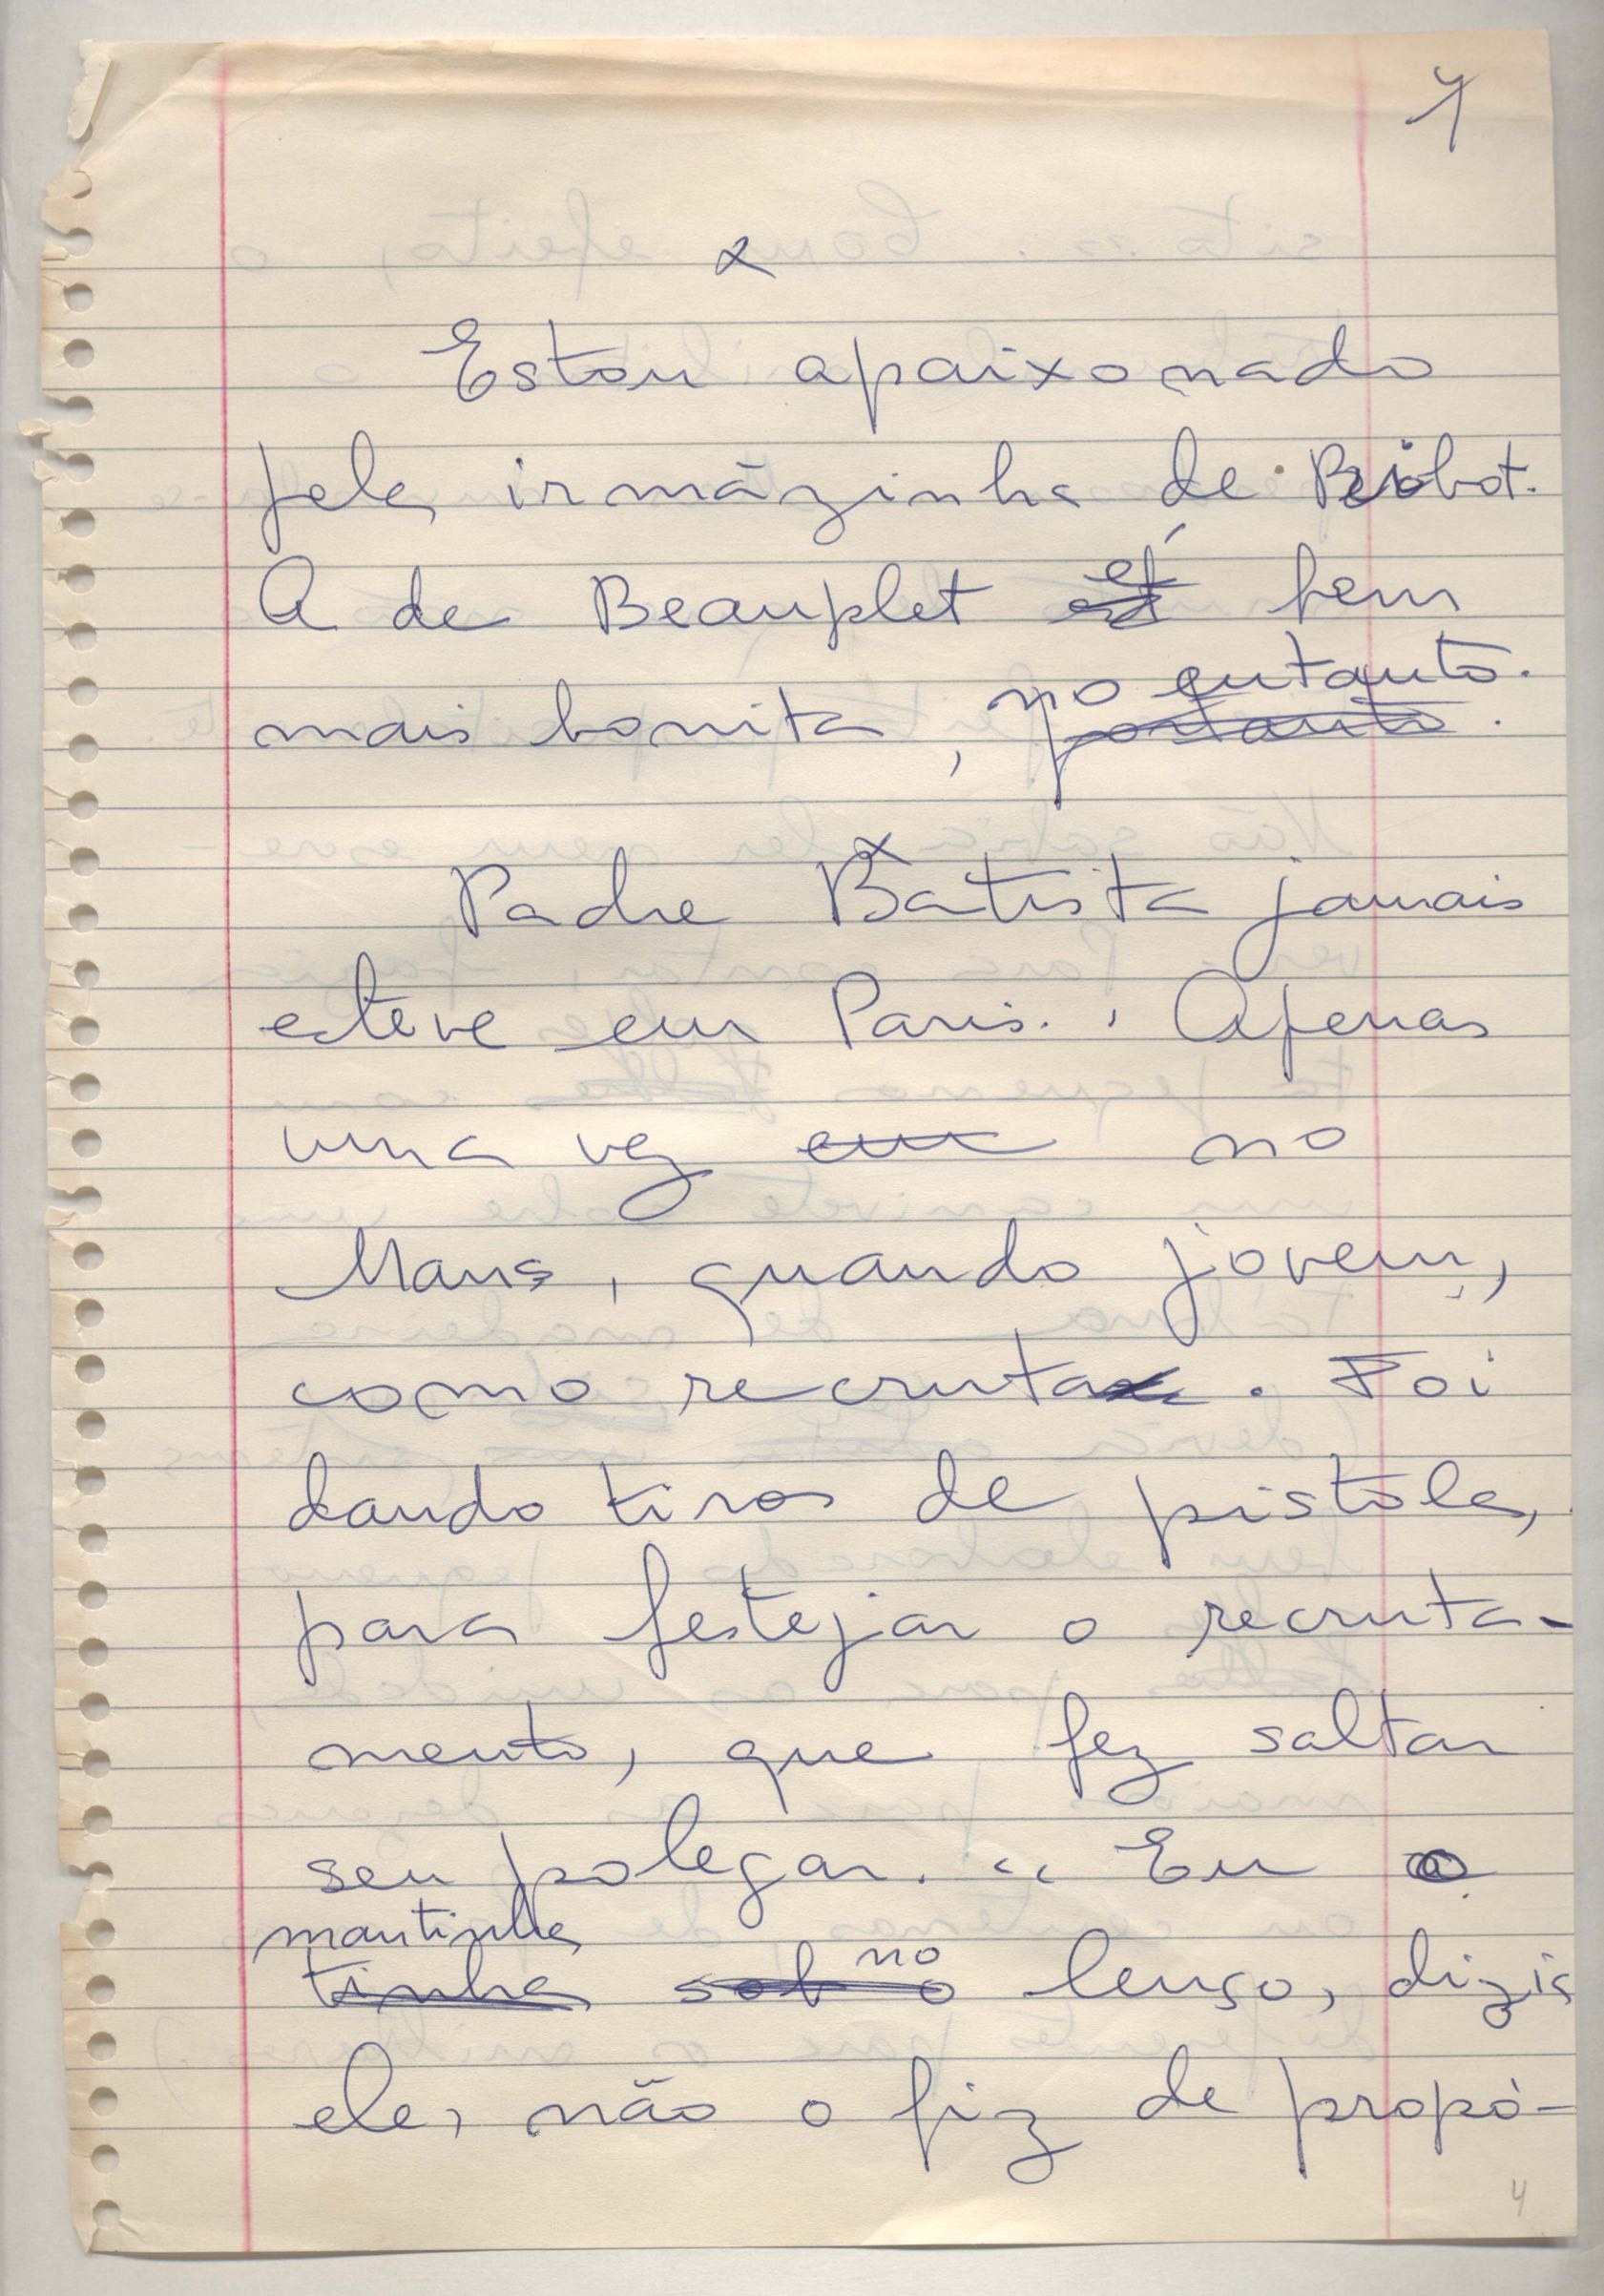 4
x
Estou apaixonado
pela irmãzinha de Ribot.
A de Beauplet é bem
mais bonita, no entanto.
portanto.
x
Padre Batista jamais
esteve em Paris. Apenas
uma vez em no
Mans, quando jovem,
como recruta. Foi
dando tiros de pistola,
para festejar o recruta-
mento, que fez saltar
seu polegar. " Eu o
mantinha no
tinha sob o lenço, dizia
ele, não o fiz de propó-
4